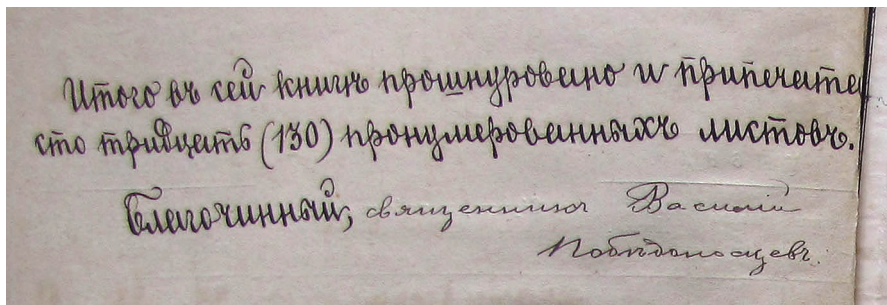 Итого въ сей книгѣ прошнуровано и припечата
сто тридцать (130) пронумерованныхъ листовъ.
Благочинный, священникъ Василій
Побѣдоносцевъ.